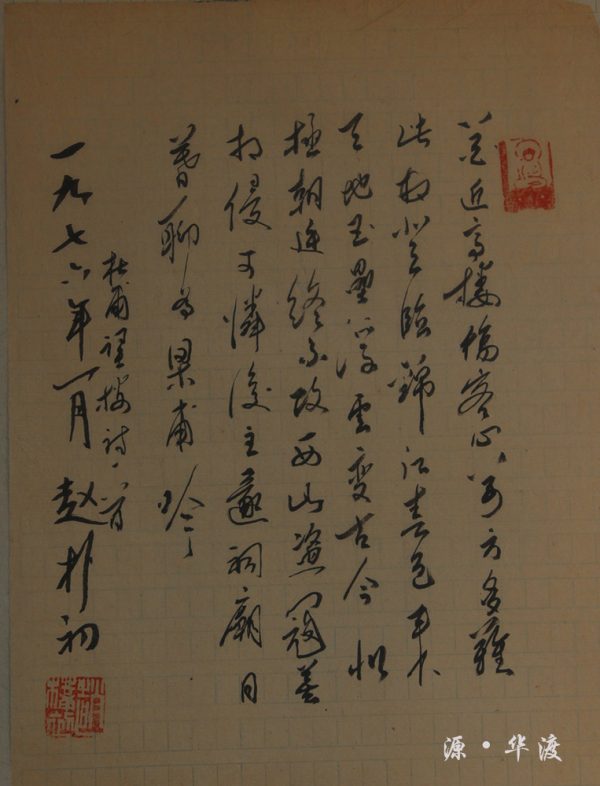 花近高楼傷客心万方多難
此登臨錦江春色来
天地玉壘浮雲变古今北
極朝廷終不改西山盗寇莫
相侵可憐後主還祠廟日
暮聊为梁甫吟
杜甫登楼诗一首
一九七六年一月 赵朴初
源·华渡